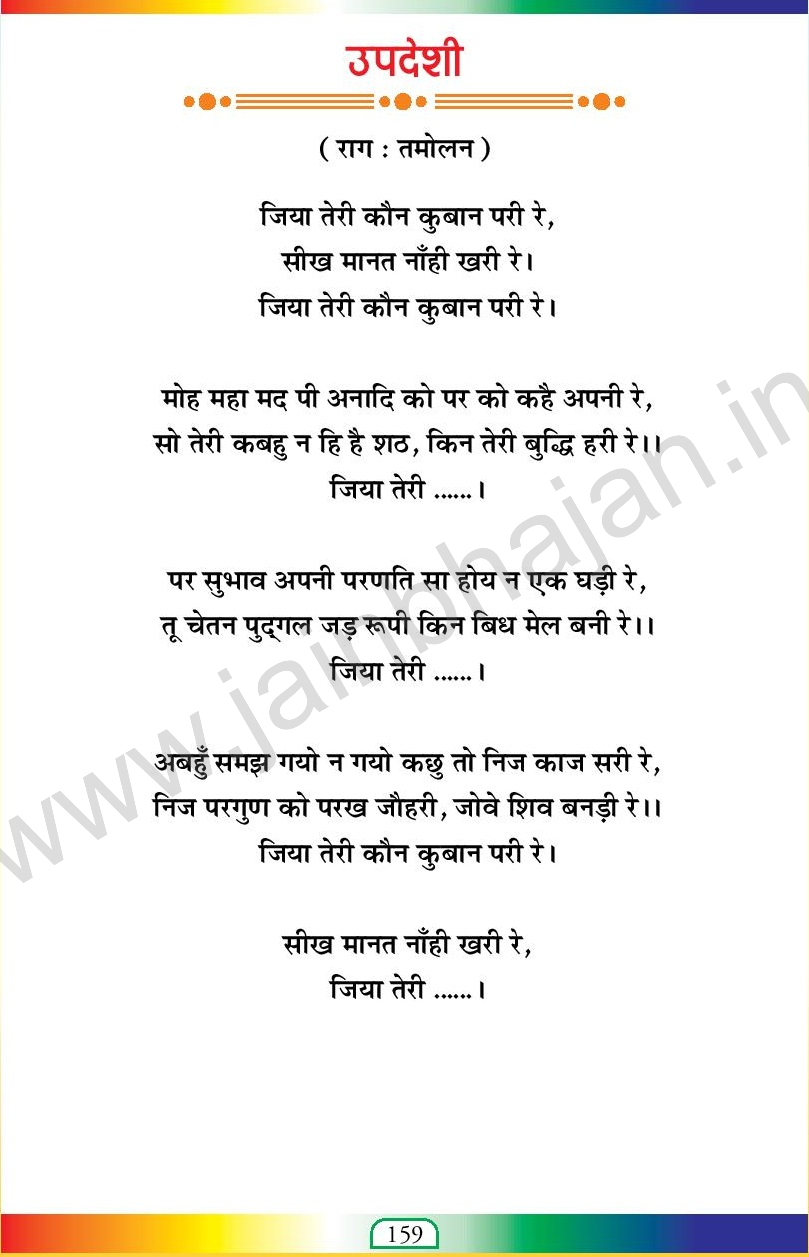 उपदेशी
( राग : तमोलन )
जिया तेरी कौन कुबान परी रे,
सीख मानत नाँही खरी रे।
जिया तेरी कौन कुबान परी रे।
मोह महा मद पी अनादि को पर को कहै अपनी रे,
सो तेरी कबहु न हि है शठ, किन तेरी बुद्धि हरी रे।।
जिया तेरी ......।
पर सुभाव अपनी परणति सा होय न एक घड़ी रे,
तू चेतन पुद्‌गल जड़ रूपी किन बिध मेल बनी रे।।
जिया तेरी ......।
अबहुँ समझ गयो न गयो कछु तो निज काज सरी रे,
निज परगुण को परख जौहरी, जोवे शिव बनड़ी रे।।
जिया तेरी कौन कुबान परी रे।
सीख मानत नाँही खरी रे,
जिया तेरी ......।
www.jainbhajan.in
159